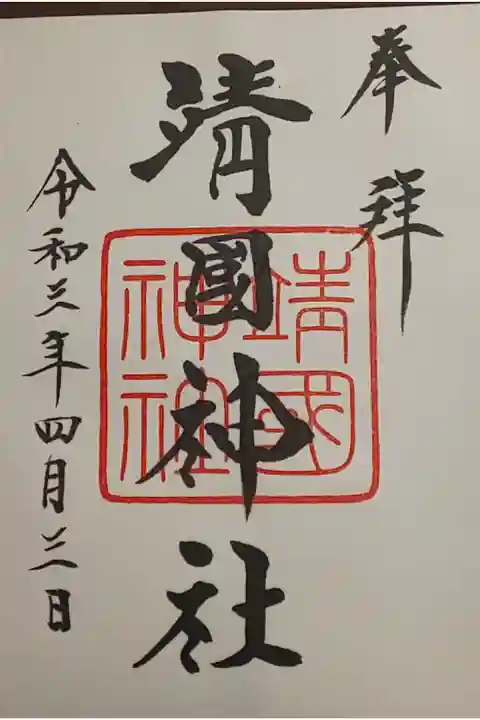 奉拝
靖國神社
靖國
神社
令和三年四月三日